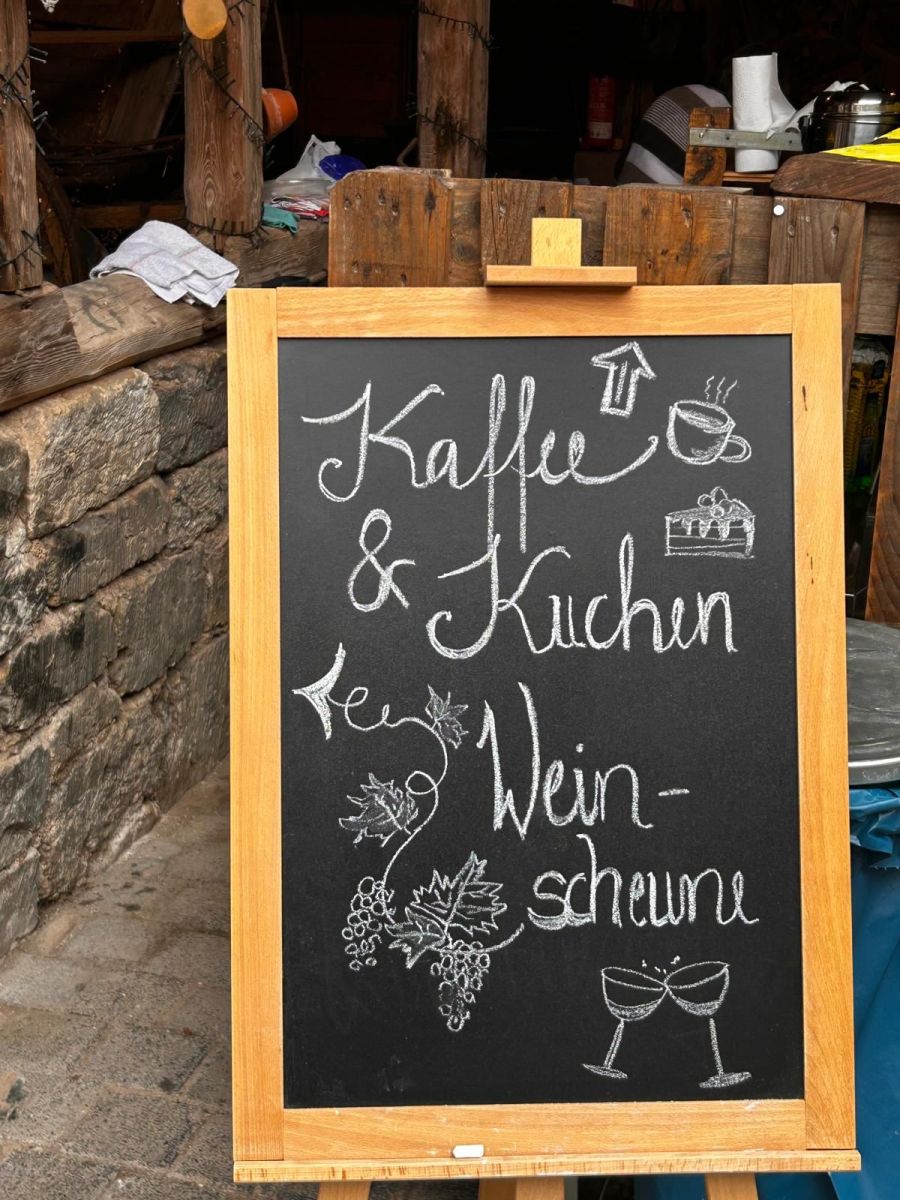 Kaffee
& Kuchen
Wein-
scheune